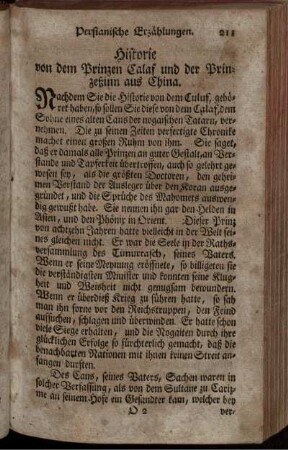 Persianische Erzählungen. 211
Historie
von dem Prinzen Calaf und der Prin-
zeßinn aus China.
Nachdem Sie die Historie von dem Culuf, gehö-
ret haben, so sollen Sie diese von dem Calaf, dem
Sohne eines alten Cans der nogaischen Tatarn, ver-
nehmen. Die zu seinen Zeiten verfertigte Chronike
machet einen großen Ruhm von ihm. Sie saget,
daß er damals alle Prinzen an guter Gestalt, an Ver-
stande und Tapferkeit übertroffen, auch so gelehrt ge-
wesen sey, als die größten Doctoren, den geheim-
en Verstand der Ausleger über den Koran ausge-
gründet, und die Sprüche des Mahomets auswen-
dig gewußt habe. Sie nennen ihn gar den Helden in
Asien, und den Phönix in Orient. Dieser Prinz
von achtzehn Jahren hatte vielleicht in der Welt sei-
nes gleichen nicht. Er war die Seele in der Raths-
versammlung des Timurtasch, seines Vaters.
Wenn er seine Meynung eröffnete, so billigeten sie
die verständigsten Minister und konnten seine Klug-
heit und Weisheit nicht genugsam bewundern.
Wenn er überdieß Krieg zu führen hatte, so sah
man ihn forne vor den Reichstruppen, den Feind
aufsuchen, schlagen und überwinden. Er hatte schon
viele Siege erhalten, und die Nogaiten durch ihre
glücklichen Erfolge so fürchterlich gemacht, daß die
benachbarten Nationen mit ihnen keinen Streit an-
fangen durften.
Des Cans, seines Vaters, Sachen waren in
solcher Verfassung, als von dem Sultane zu Cariz-
me an seinem Hofe ein Gesandter kam, welcher bey
O 2 ver-